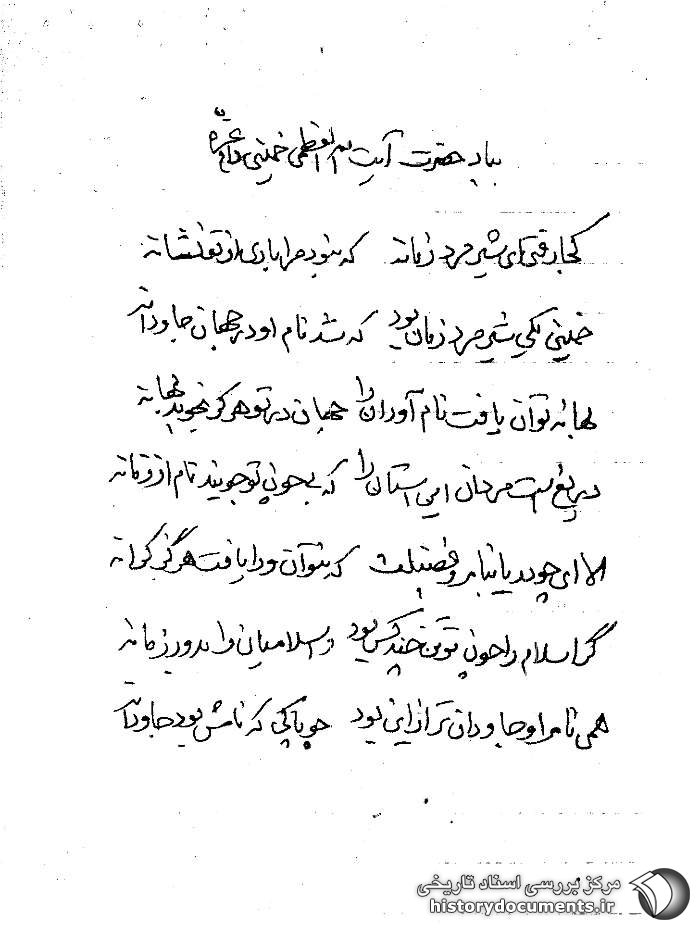 بیاد حضرت آیت الله العظمی خمینی
کجا رفتی ای شیر مرد زمانه که نبود مرا یادی از تو نشانه
خمینی یکی شیر مرد زمان بود که شد نام او در جهان جاودانه
بهانه توان یافت نام آوران را جهان در تو هرگز نجوید بهانه
دریغ است مردان این آستان را که بی چون تو جویند نام از زمانه
الا ای چو دریا و فضیلت که نتوان ورا یافت هرگز کرانه
گر اسلام را چون تو تن چند کس بود و اسلامیان را بدور زمانه
همی نام او جاودان تر از این بود چو پاکی که نامش بود جاودانه
مرکز بررسی اسناد تاریخی
historydocuments.ir